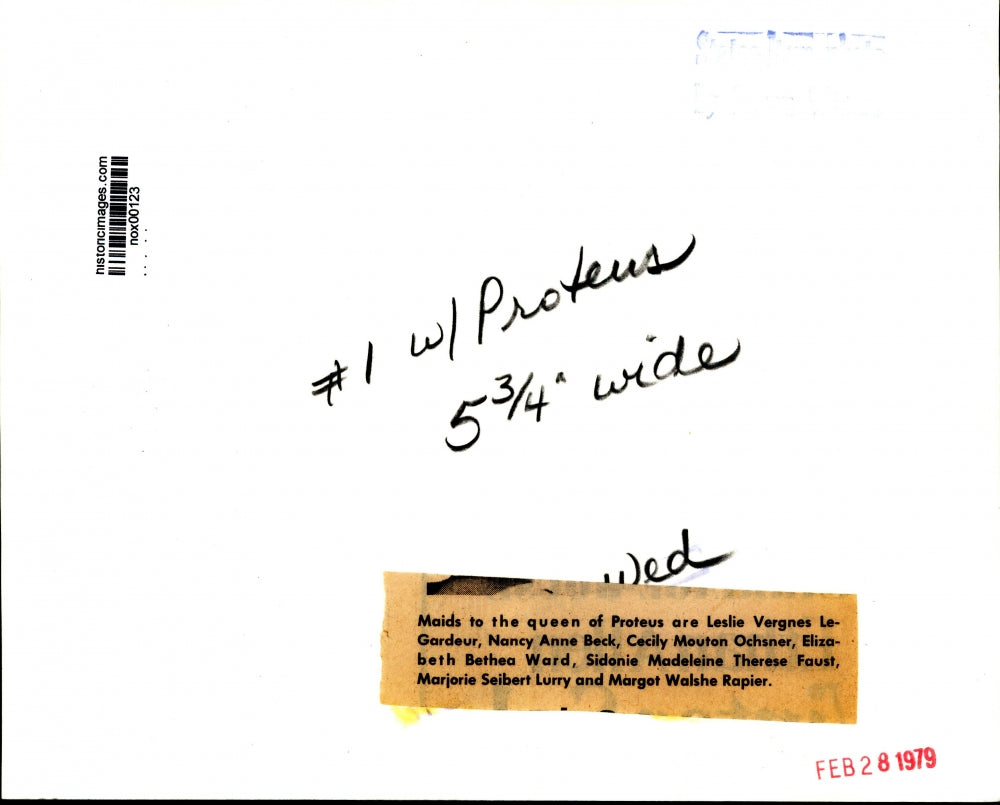 historicimages.com
nox00123
#1 w/ Proteus
5 3/4" wide
Wed
Maids to the queen of Proteus are Leslie Vergnes Le-
Gardeur, Nancy Anne Beck, Cecily Mouton Ochsner, Eliza-
beth Bethea Ward, Sidonie Madeleine Therese Faust,
Marjorie Seibert Lurry and Margot Walshe Rapier.
FEB 28 1979